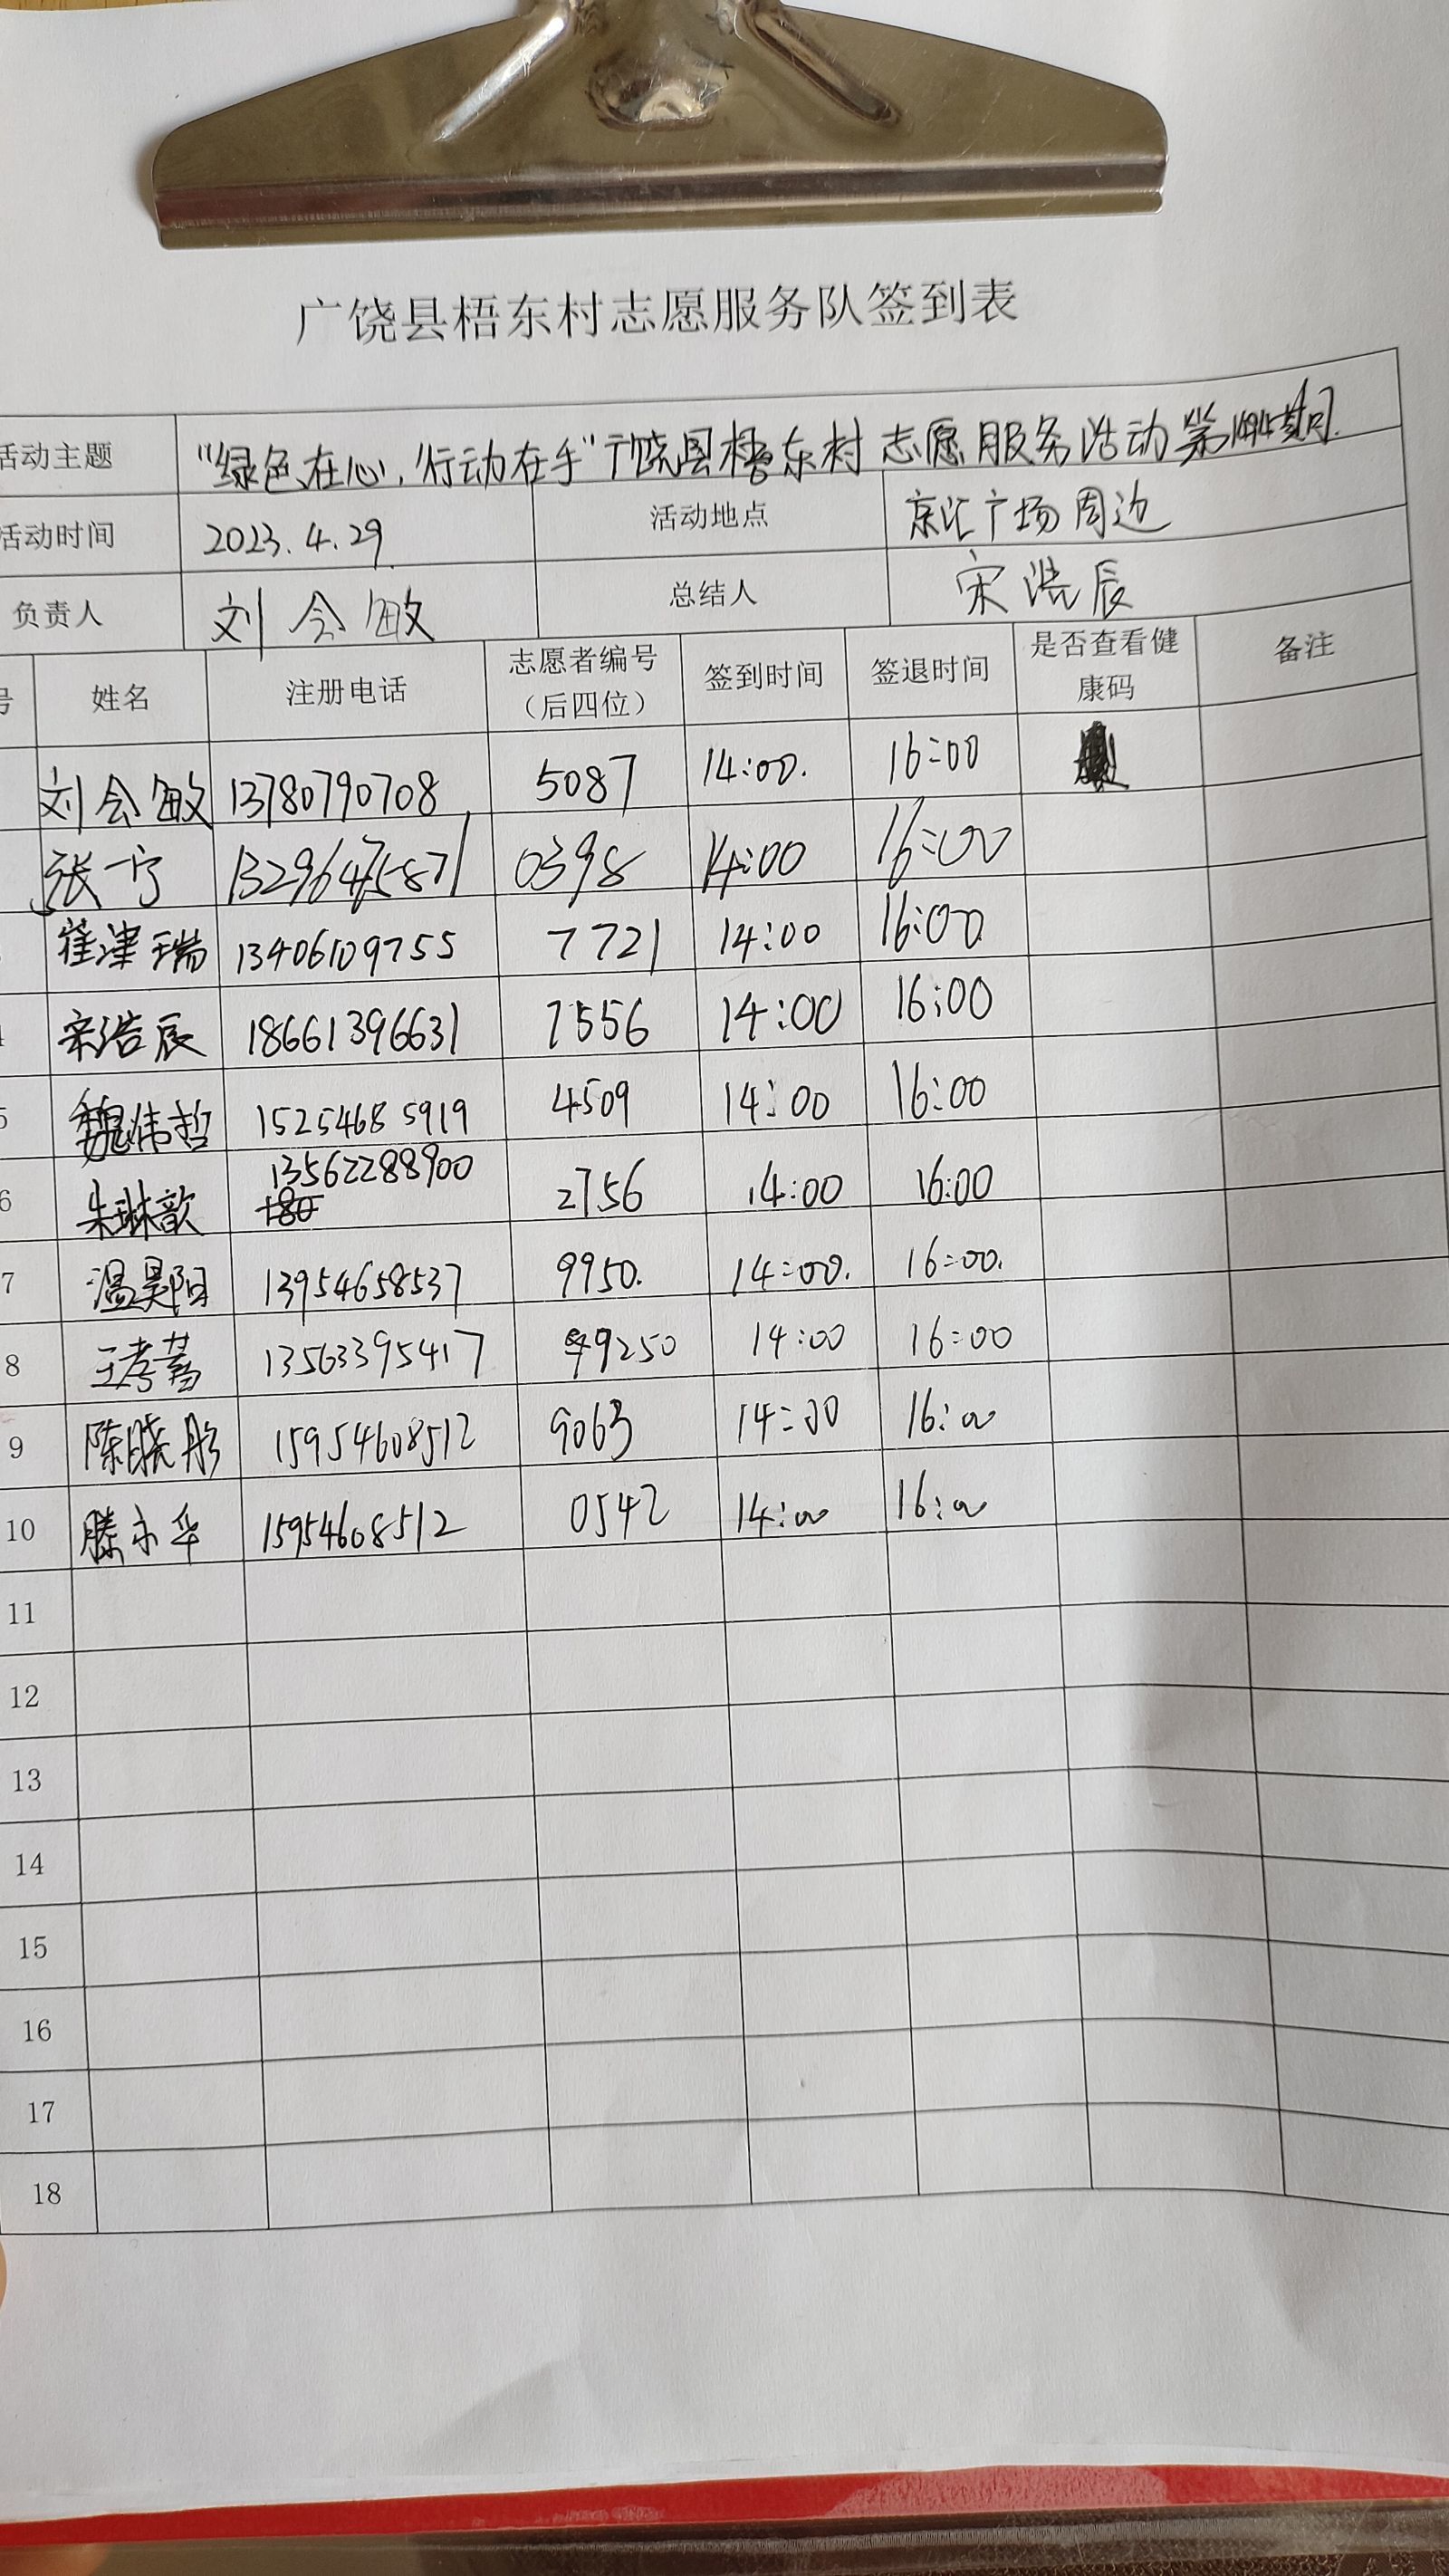 广饶县梧东村志愿服务队签到表
活动主题 "绿色在心,行动在手"广饶县梧东村志愿服务活动第 期
活动时间 2023.4.29. 活动地点 京汇广场周边
负责人 刘会敏 总结人 宋浩辰
号 姓名 注册电话 志愿者编号（后四位） 签到时间 签退时间 是否查看健康码 备注
刘会敏 13780790708 5087 14:00. 16:00
张宁 0398 14:00 16:00
崔津瑞 13406109755 7721 14:00 16:00
4 宋浩辰 18661396631 7556 14:00 16:00
5 魏伟哲 15254685919 4509 14:00 16:00
6 朱琳歆 13562288900 2756 14:00 16:00
7 温昊阳 13954658537 9950. 14:00. 16:00.
8 王孝菁 13563395417 9250 14:00 16:00
9 陈晓彤 15954608512 9063 14:00 16:00
10 滕永华 15954608512 0542 14:00 16:00
11
12
13
14
15
16
17
18